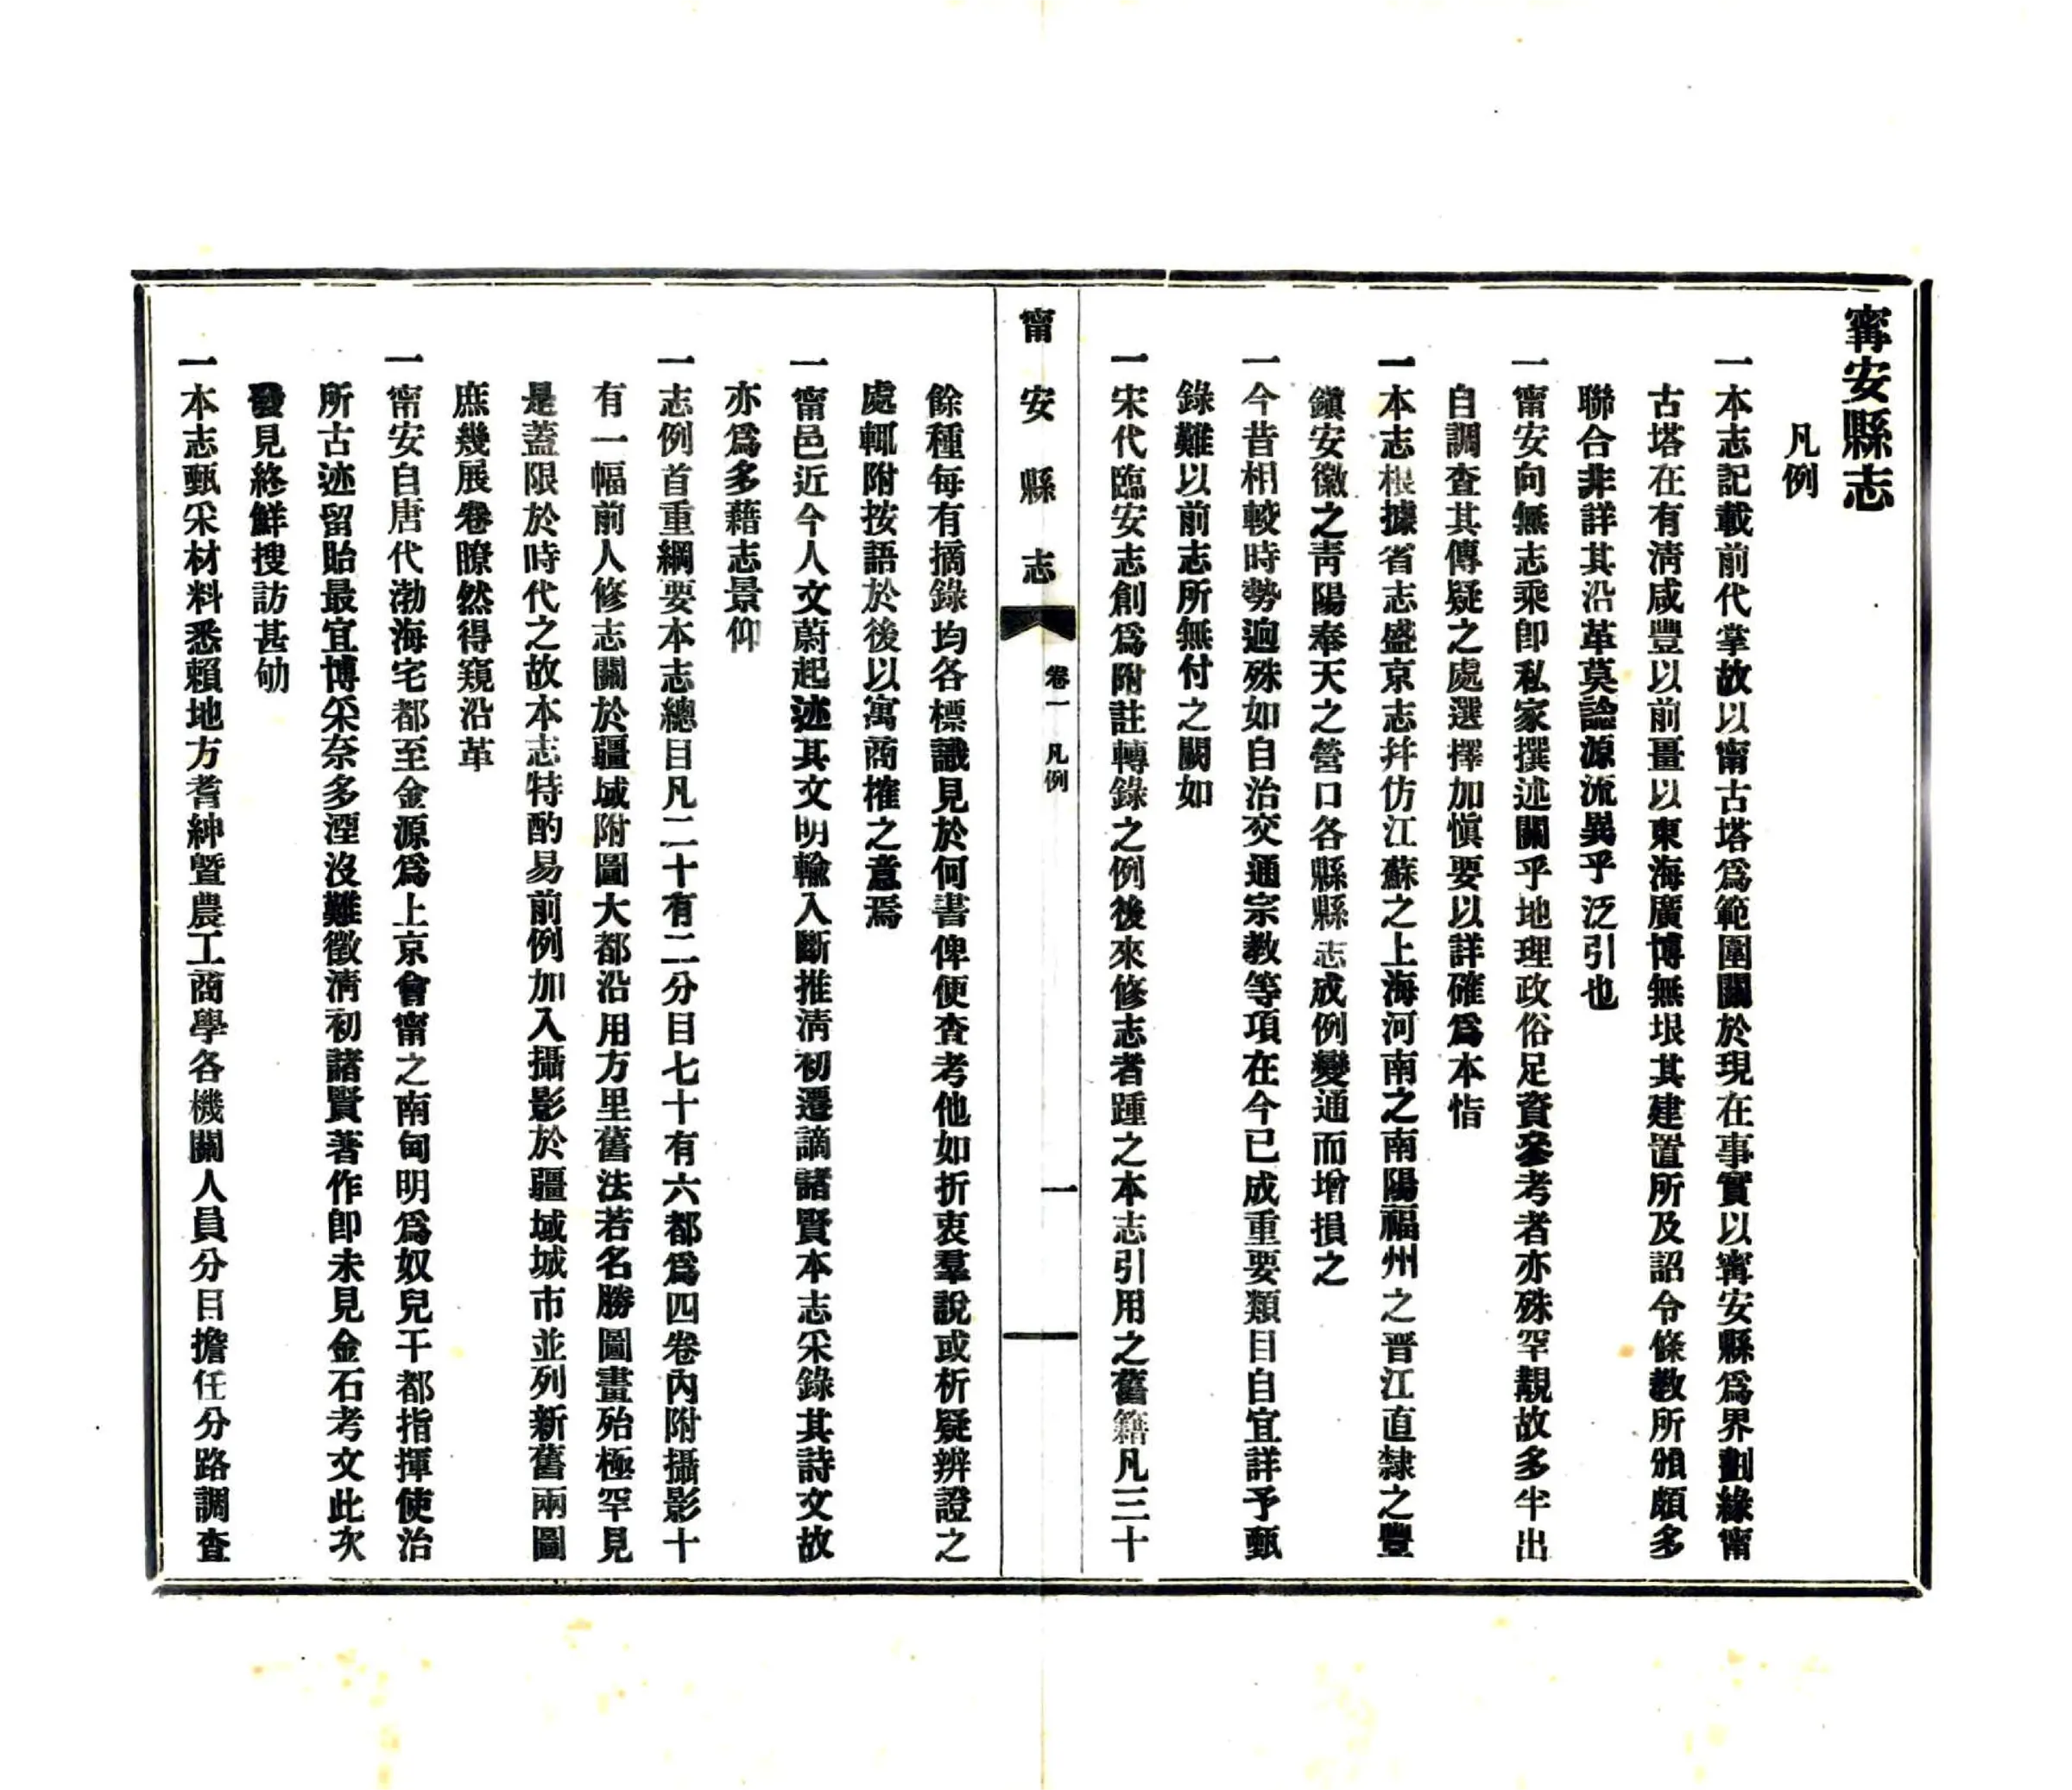 甯安縣志
凡例
一本志記載前代掌故以甯古塔爲範圍關於現在事實以甯安縣爲界劃緣甯
古塔在有淸咸豐以前畺以東海廣博無垠其建置所及詔令條教所頒頗多
聯合非詳其沿革莫論源流異乎泛引也
一甯安向無志乘卽私家撰述關乎地理政俗足資參考者亦殊罕覯故多半出
自調查其傳疑之處選擇加愼要以詳確爲本恉
一本志根據省志盛京志幷仿江蘇之上海河南之南陽福州之晋江直隸之豐
鎭安徽之靑陽奉天之營口各縣縣志成例變通而增損之
一今昔相較時勢逈殊如自治交通宗教等項在今已成重要類目自宜詳予甄
錄難以前志所無付之闕如
一宋代臨安志創爲附註轉錄之例後來修志者踵之本志引用之舊籍凡三十
甯安縣志
卷一 凡例
一
餘種每有摘錄均各標識見於何書俾便查考他如折衷羣說或析疑辨證之
處輒附按語於後以寓商榷之意焉
一甯邑近今人文蔚起述其文明輸入斷推淸初遷謫諸賢本志采錄其詩文故
亦爲多藉志景仰
一志例首重綱要本志總目凡二十有二分目七十有六都爲四卷內附攝影十
有一幅前人修志關於疆域附圖大都沿用方里舊法若名勝圖畫殆極罕見
是蓋限於時代之故本志特酌易前例加入攝影於疆域城市並列新舊兩圖
庶幾展卷瞭然得窺沿革
一甯安自唐代渤海宅都至金源爲上京會甯之南甸明爲奴兒干都指揮使治
所古迹留貽最宜博采奈多湮沒難徵淸初諸賢著作卽未見金石考文此次
發見終鮮搜訪甚劬
一本志甄采材料悉賴地方耆紳暨農工商學各機關人員分目擔任分路調查